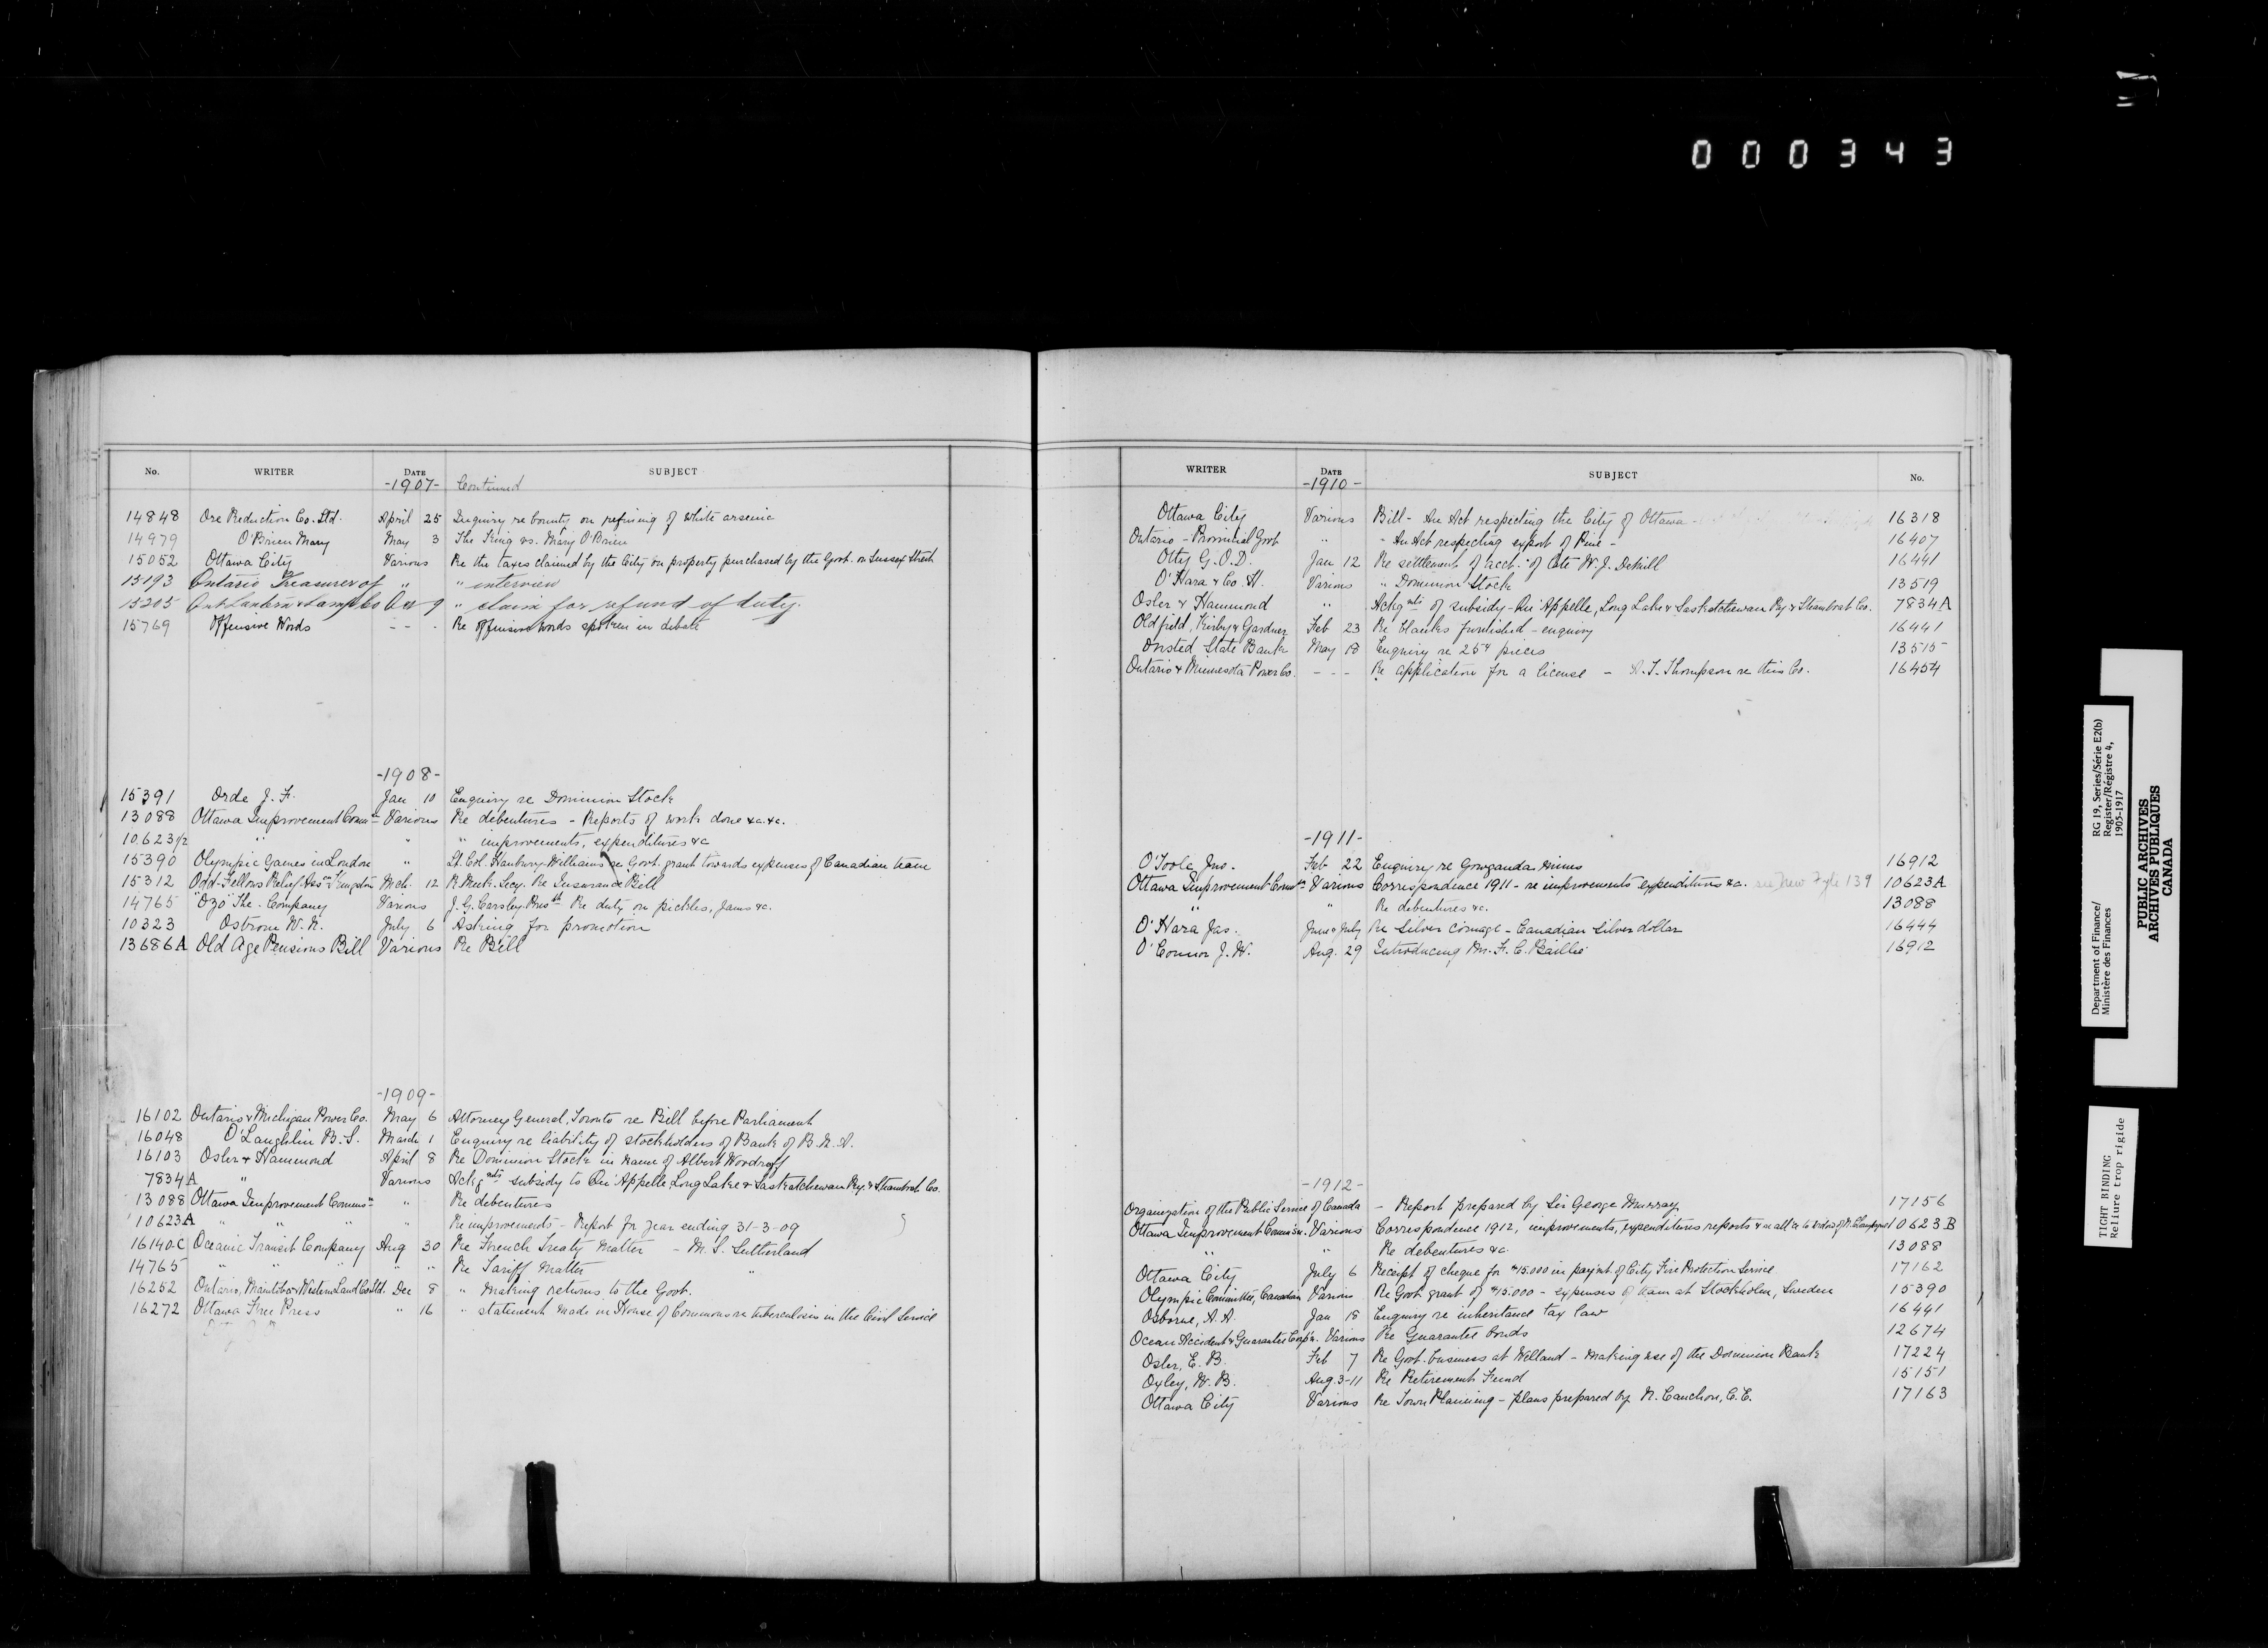 000343
No. WRITER DATE SUBJECT
-1907- Continued
14848 Ore Reduction Co. Ltd. April 25 Inquiry re bounty on refining of white arsenic
14979 O'Brien Mary May 3 The King vs. Mary O'Brien
15052 Ottawa City Various Re the taxes claimed by the City on property purchased by the Govt. on Sussex Street
15193 Ontario Treasurer of " " interview
15205 Ont Lantern & Lamp Co Oct 9 " claim for refund of duty.
15769 Offensive Words - - - Re offensive words spoken in debate
-1908-
15391 Orde J. F. Jan 10 Enquiry re Dominion Stock
13088 Ottawa Improvement Comm Various Re debentures - Reports of work done &c. &c.
10,623 1/2 " " " improvements, expenditures &c
15390 Olympic Games in London " Lt. Col. Hanbury-Williams re Govt. grant towards expenses of Canadian team
15312 Odd-Fellows Relief Assn Kingston Mch. 12 R. Meek Secy. Re Insurance Bill
14765 "Ozo" The - Company Various J. G. Carsley Prest Re duty on pickles, jams &c.
10323 Ostrom W. N. July 6 Asking for promotion
13686A Old Age Pensions Bill Various Re Bill
-1909-
16102 Ontario & Michigan Power Co. May 6 Attorney General, Toronto re Bill before Parliament
16048 O'Laughlin B. S. March 1 Enquiry re liability of stockholders of Bank of B. N. A.
16103 Osler & Hammond April 8 Re Dominion Stock in name of Albert Woodruff
7834A " Various Ackgmts subsidy to Qu'Appelle, Long Lake & Saskatchewan Ry. & Steamboat Co.
13088 Ottawa Improvement Commsn " Re debentures
10623A " " " " Re improvements - Report for year ending 31-3-09
16140C Oceanic Transit Company Aug 30 Re French Treaty Matter - M. S. Sutherland
14765 " " " " " Re Tariff Matter "
16252 Ontario, Manitoba & Western Land Co Ltd. Dec 8 " Making returns to the Govt.
16272 Ottawa Free Press " 16 " statement made in House of Commons re tuberculosis in the Civil Service
WRITER DATE SUBJECT No.
-1910-
Ottawa City Various Bill - An Act respecting the City of Ottawa - 16318
Ontario - Provincial Govt " " An Act respecting export of Pine - 16407
Otty G. O. D. Jan 12 Re settlement of acct. of late W. J. 16441
O'Hara & Co. H. Various " Dominion Stock 13519
Osler & Hammond " Ackgmts of subsidy - Qu'Appelle, Long Lake & Saskatchewan Ry. & Steamboat Co. 7834A
Oldfield, Kirby & Gardner Feb 23 Re blanks furnished - enquiry 16441
Onsted State Bank May 18 Enquiry re 25¢ pieces 13515
Ontario & Minnesota Power Co. - - - Re application for a license - Thompson re this Co. 16454
-1911-
O'Toole, Jno. Feb 22 Enquiry re Gowganda Mines 16912
Ottawa Improvement Commsn Various Correspondence 1911 - re improvements expenditures &c. see New Fyle 139 10623A
" " Re debentures &c. 13088
O'Hara Jas. June & July Re Silver coinage - Canadian silver dollar 16444
O'Connor J. W. Aug. 29 Introducing Mr. F. C. Baillie 16912
-1912-
Organization of the Public Service of Canada - Report prepared by Sir George Murray 17156
Ottawa Improvement Commssn. Various Correspondence 1912, improvements, expenditures reports & 10623B
" " Re debentures &c. 13088
Ottawa City July 6 Receipt of cheque for $15.000 in paymt. of City Fire Protection Service 17162
Olympic Committee, Canadian Various Re Govt. grant of $15.000 - expenses of team at Stockholm, Sweden 15390
Osborne, A. A. Jan 18 Enquiry re inheritance tax law 16441
Ocean Accident & Guarantee Corp'n. Various Re Guarantee bonds 12674
Osler, E. B. Feb 7 Re Govt. business at Welland - making use of the Dominion Bank 17224
Oxley, W. B. Aug. 3-11 Re Retirement Fund 15151
Ottawa City Various Re Town Planning - plans prepared by N. Cauchon, C. E. 17163
Department of Finance/
Ministère des Finances
RG 19, Series/Série E2(b)
Register/Régistre 4,
1905-1917
PUBLIC ARCHIVES
ARCHIVES PUBLIQUES
CANADA
TIGHT BINDING
Reliure trop rigide